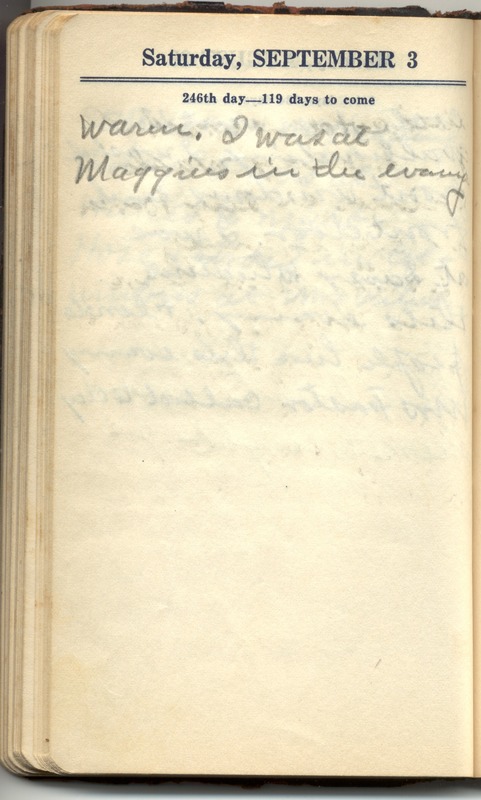 Saturday, SEPTEMBER 3
246th day—119 days to come
warm. I was at
Maggies in the evang